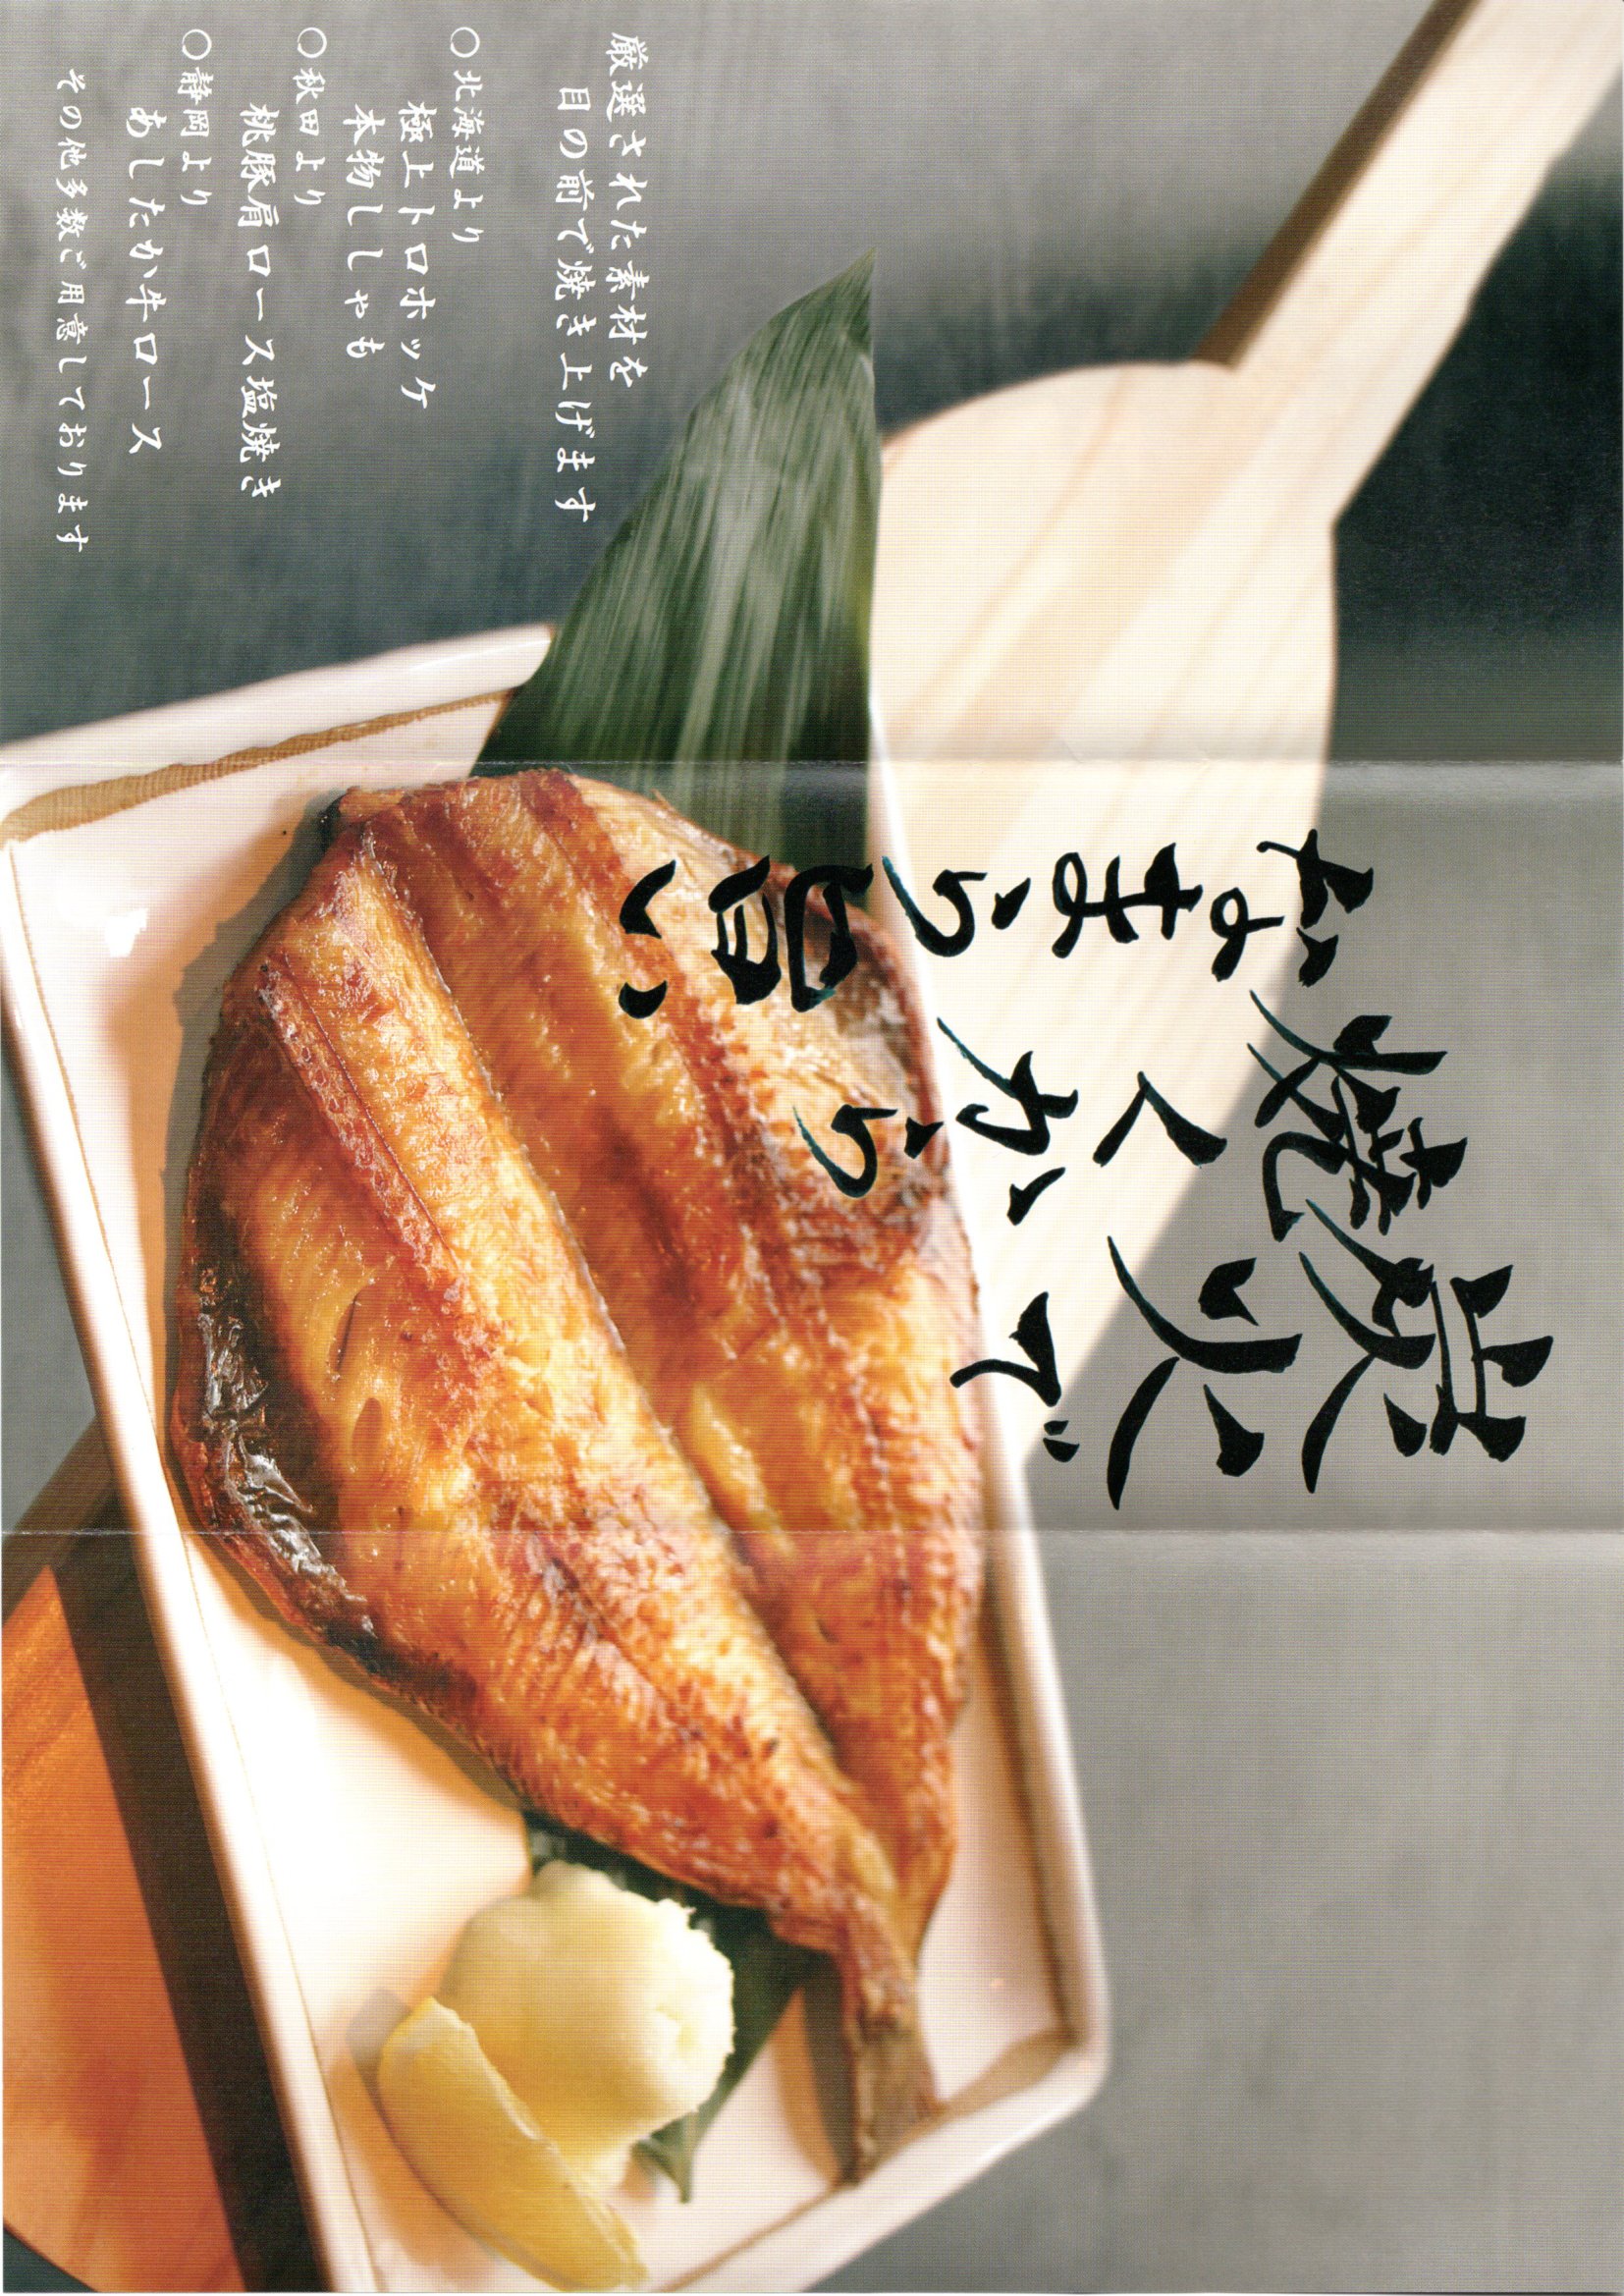 炭火で
焼くから
なまら旨い
厳選された素材を
目の前で焼き上げます
〇北海道より
極上トロホッケ
本物ししゃも
〇秋田より
桃豚肩ロース塩焼き
〇静岡より
あしたか牛ロース
その他多数ご用意しております